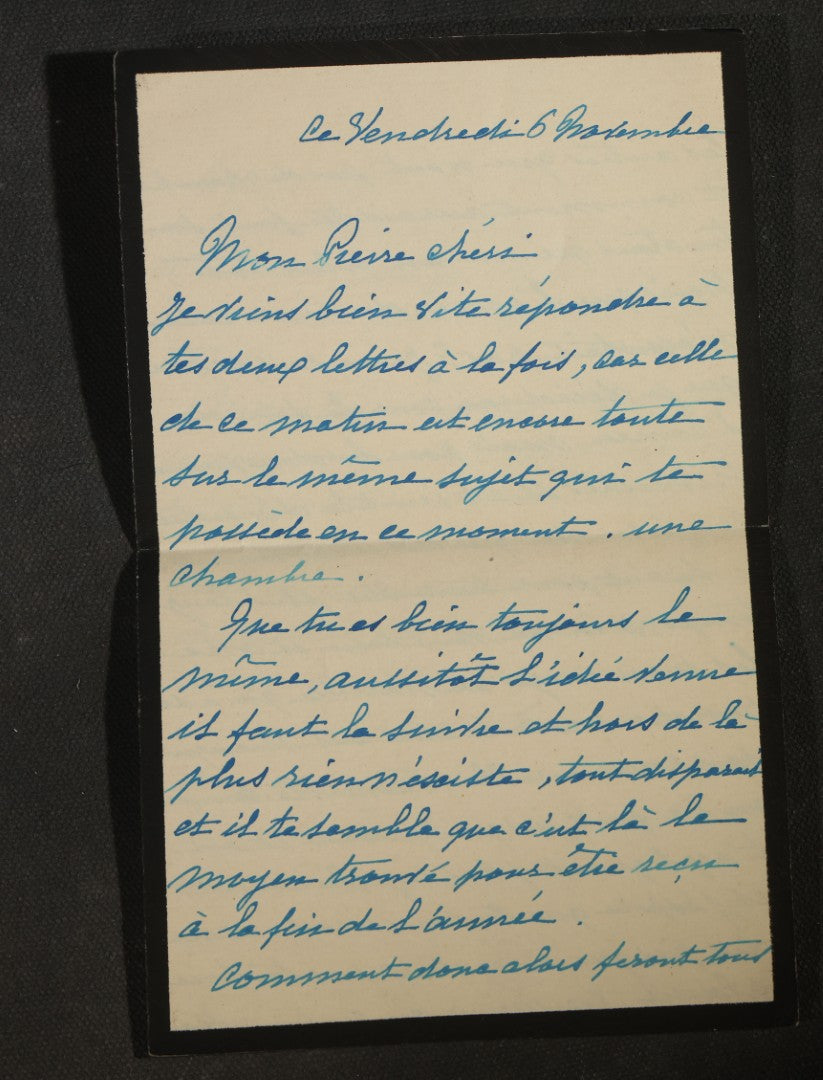 Ce Vendredi 6 Novembre
Mon Pierre chéri
Je viens bien vite répondre à
tes deux lettres à la fois, car celle
de ce matin est encore toute
sur le même sujet qui te
possède en ce moment. une
chambre.
Que tu es bien toujours le
même, aussitôt l'idée venue
il faut la suivre et hors de là
plus rien n'éxiste, tout disparait
et il te semble que c'est là le
moyen trouvé pour être reçu
à la fin de l'année.
Comment donc alors feront tous